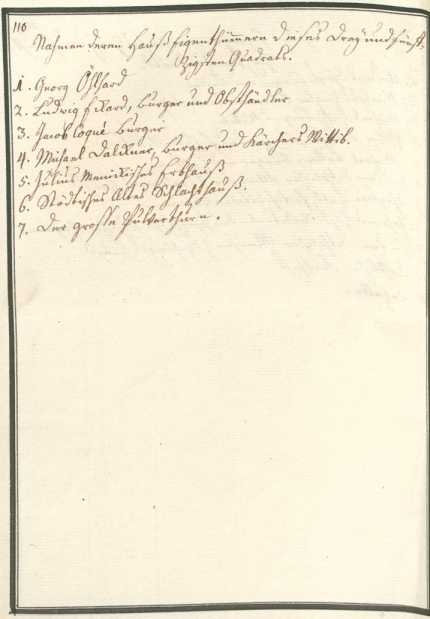 110
Nahmen deren Haußeigenthümern dieses Dreyundfünf-
zigsten Quadrats.
1. Georg Östhard
2. Ludwig Eckard, Burger und Obsthändler
3. Jacob Coqué Burger
4. Michael Daleiner, Burger und Kärchers Wittib.
5. Julius Erbhauß
6. Städtisches Altes Schlachthauß.
7. Der große Pulverthurn.